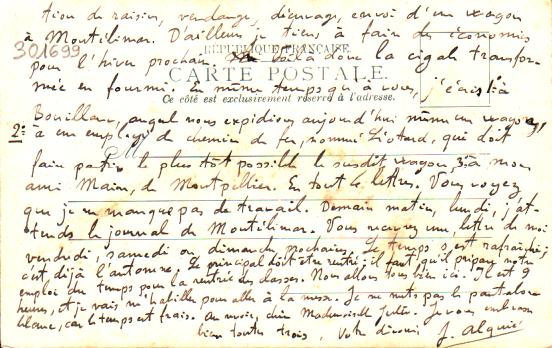 tion de raisin, vendange, décuvage, envoi d'un wagon
à Montélimar. D'ailleurs je tiens à faire des économies
301699
RÉPUBLIQUE FRANÇAISE
pour l'hiver prochain. Voilà donc la cigale transfor-
CARTE POSTALE
mée en fourmi. En même temps qu'à vous, j'écris 1: à
Ce côté est exclusivement réservé à l'adresse.
Bouillane, auquel nous expédions aujourd'hui même un wagon,
2: à un employé de chemin de fer, nommé Liotard, qui doit
faire partir le plus tôt possible le susdit wagon, 3: à mon
ami Marin, de Montpellier. En tout 4 lettres. Vous voyez
que je ne manque pas de travail. Demain matin, lundi, j'at-
tends le journal de Montélimar. Vous recevrez une lettre de moi
vendredi, samedi ou dimanche prochains. Le temps s'est rafraîchi,
c'est déjà l'automne. Le principal doit être rentré; il faut qu'il prépare notre
emploi du temps pour la rentrée des classes. Nous allons tous bien ici. Il est 9
heures, et je vais m'habiller pour aller à la messe. Je ne mets pas le pantalon
blanc, car le temps est frais. Au revoir, chère Mademoiselle Julie. Je vous embrasse
bien toutes trois, Votre dévoué J. Alquié